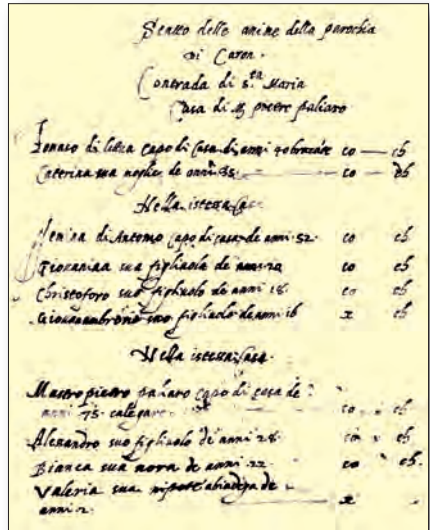 Statto delle anime della parochia
di Caron.
Contrada di s.ta Maria
Casa di Pietro paliaro
capo di Casa di anni co ch
Caterina sua moglie de anni 35 co ch
Nella istessa Casa
di Antonio Capo di casa de anni 52. co ch
Giovanina sua figliuola de anni 20 co ch
Christoforo suo figliuolo de anni 18. co ch
suo figliuolo de anni 16 x ch
Nella istessa Casa.
Mastro pietro paliaro capo di casa de
anni 75. co ch
Alexandro suo figliuolo de anni 28. x ch
Bianca sua nora de anni 22 co ch.
Valeria sua nipote de
anni 2. x